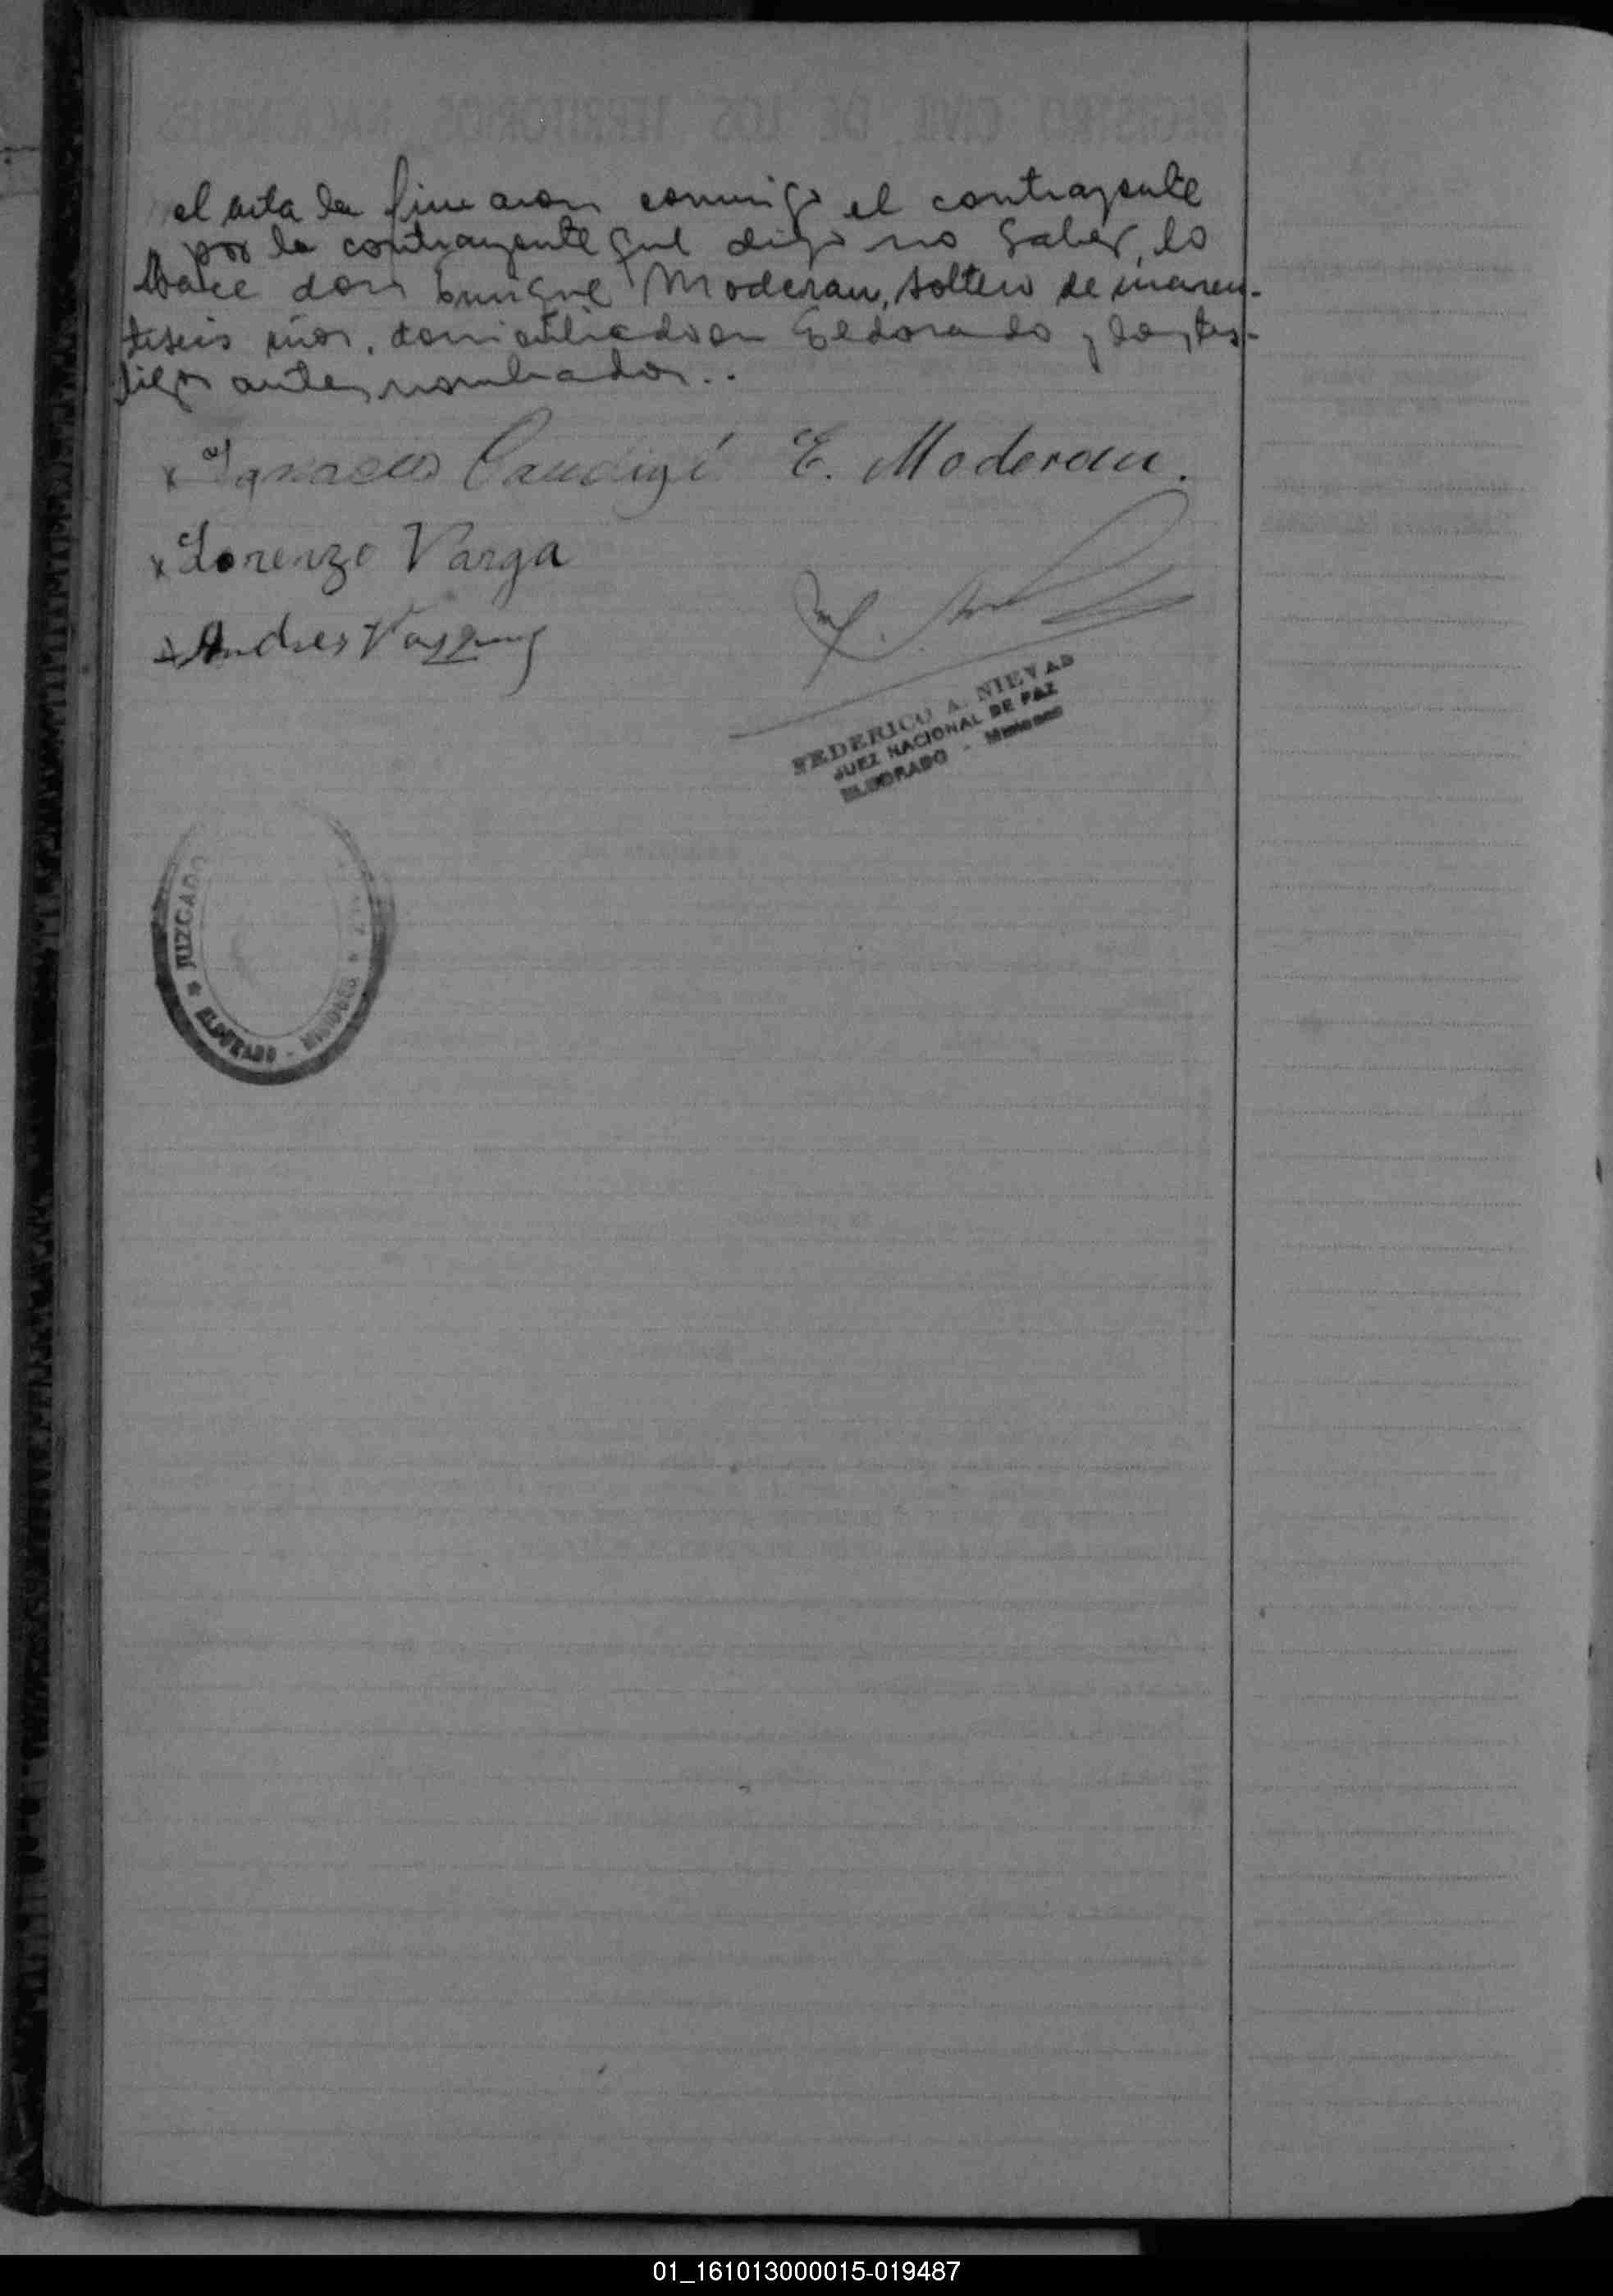 el acta la firmaron conmigo el contrayente
por la contrayente que dijo no saber, lo
hace don Enrique Moderau, soltero de cuaren-
tiseis años, domiciliado en Eldorado y los tes-
tigos antes nombrados..
x Ignacio E. Moderau.
x Lorenzo Varga
x Andres
FEDERICO A. NIEVAS
JUEZ NACIONAL DE PAZ
ELDORADO - Misiones
JUZGADO
* ELDORADO - MISIONES *
01_161013000015-019487